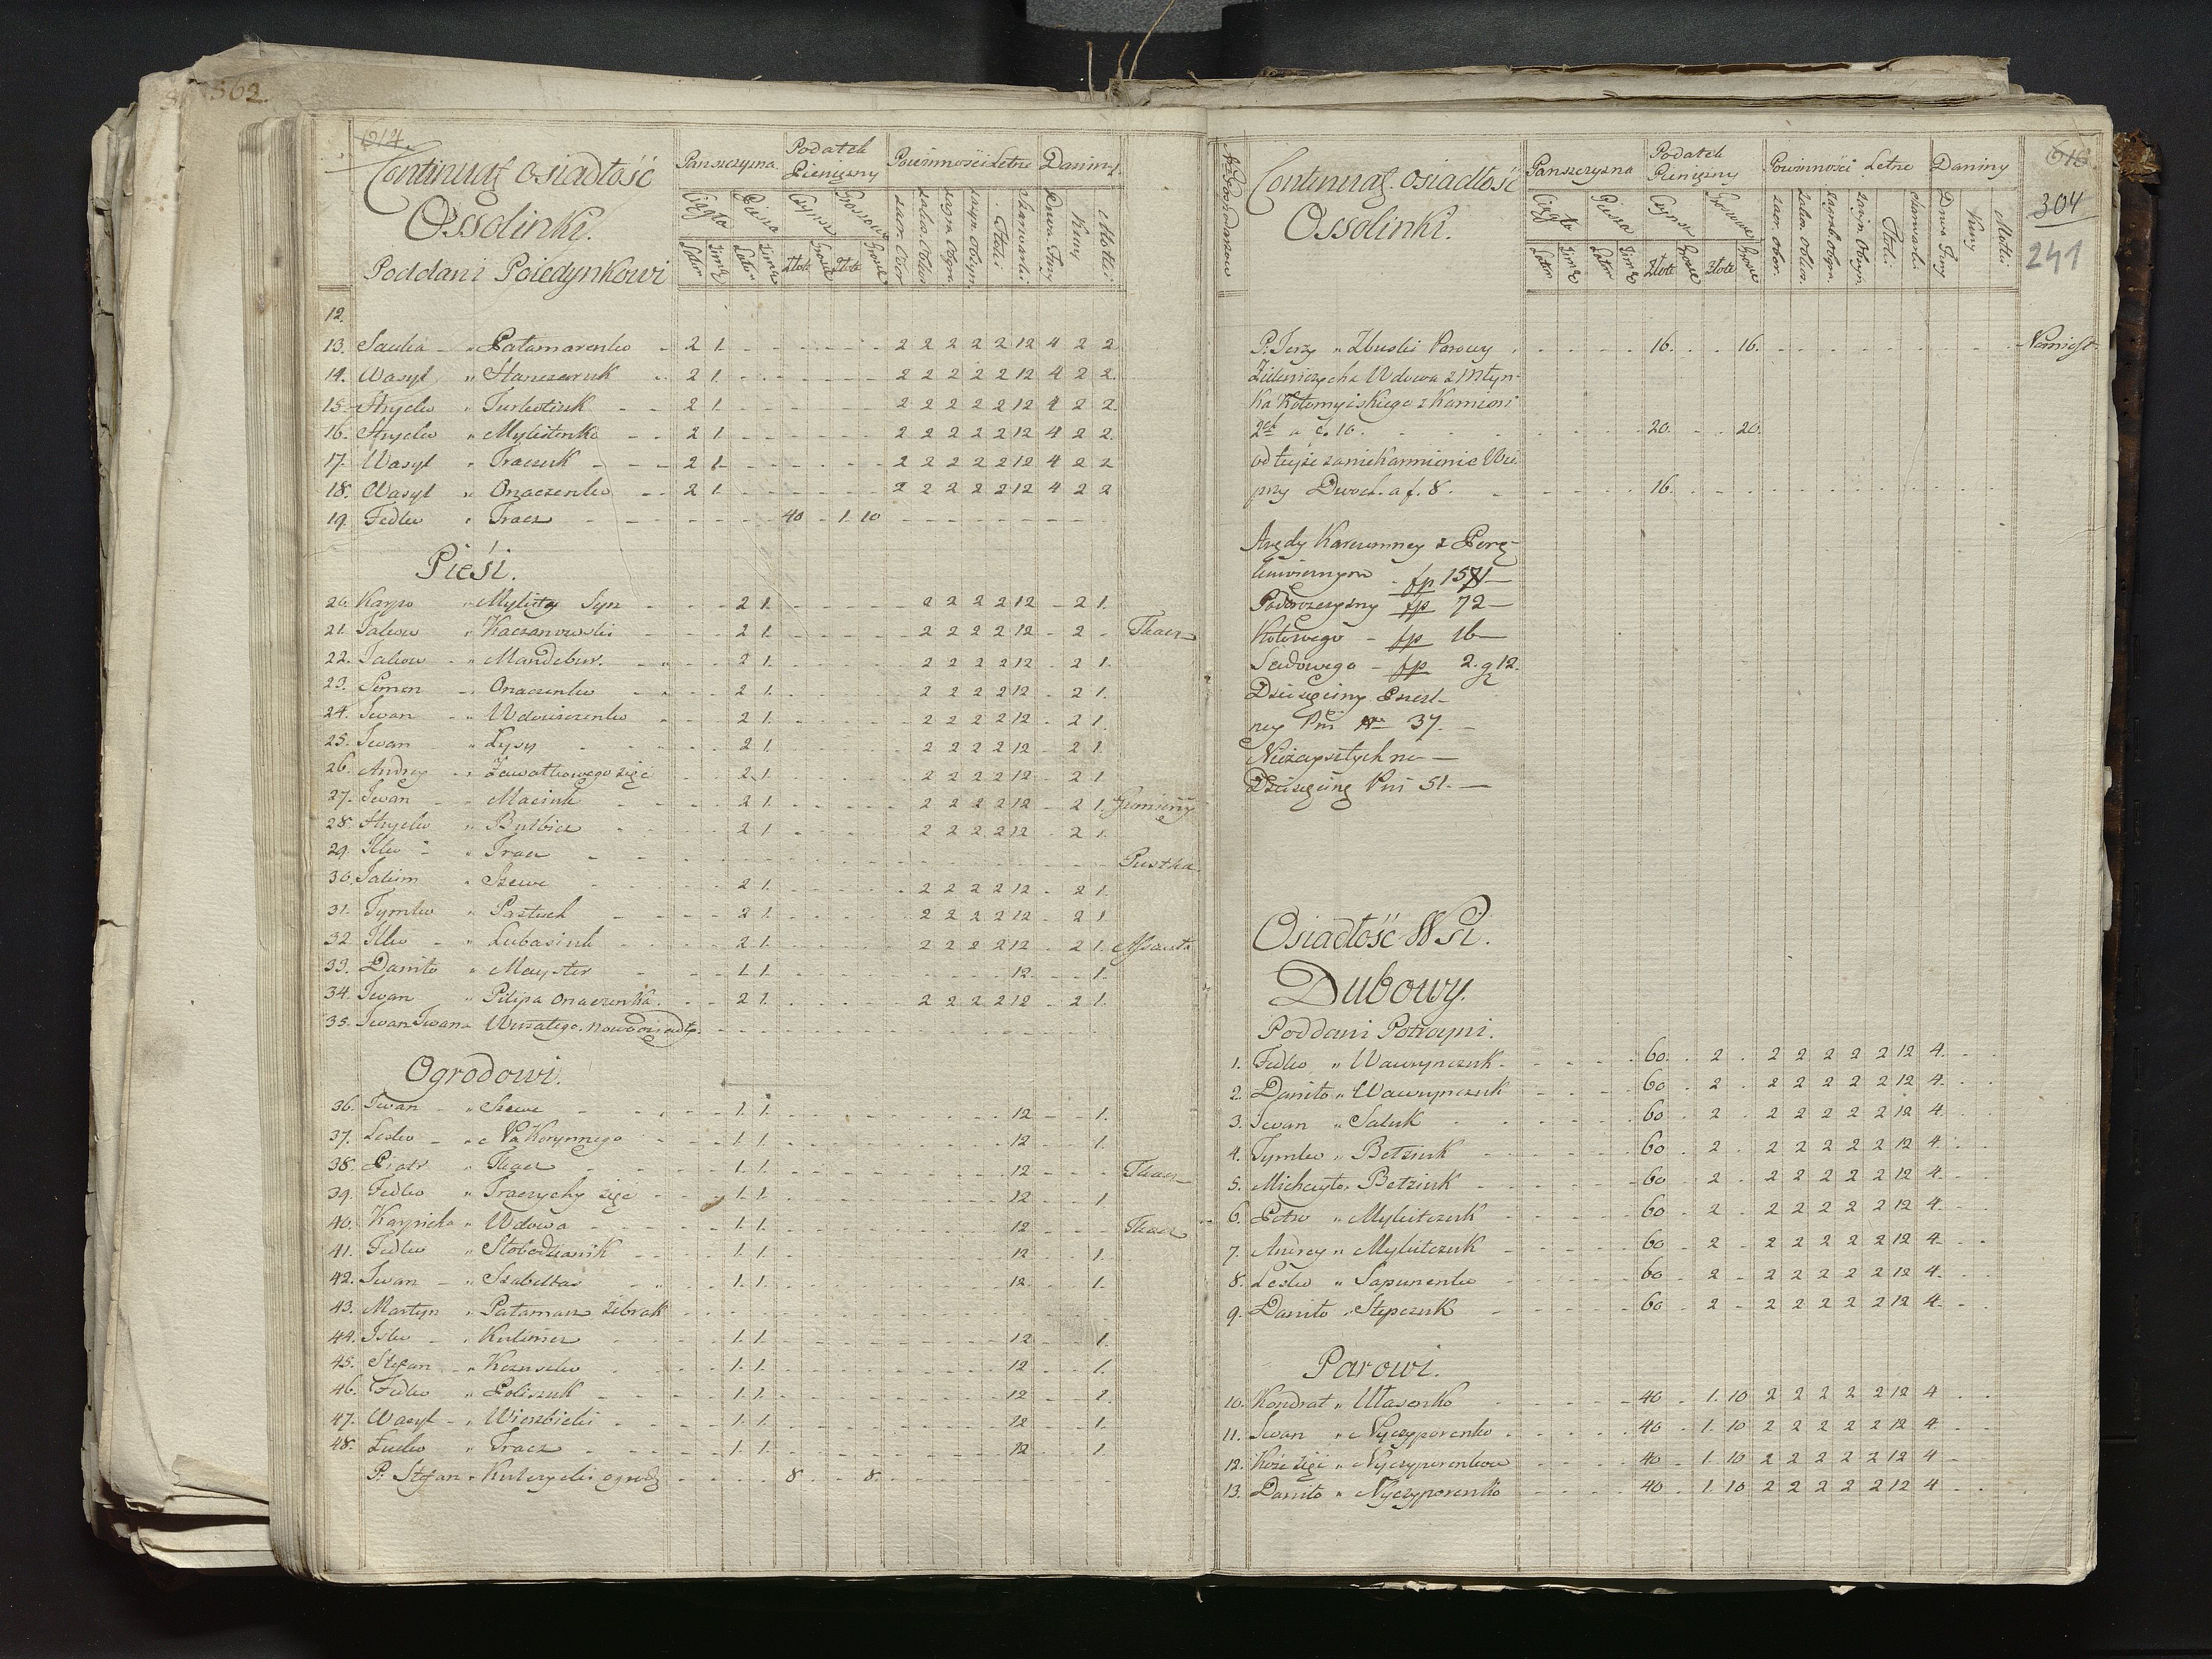 562.
614.
Continuat osiadłość
Ossolinki.
Poddani Poiedynkowi
Panszczyzna
Podatek Pieniężny
Powinności Letne
Daniny
Ciągła Piesza
Czynsz
Latem Zimą Latem Zimą Złote Grosze Złote Grosze
Kury
Motki
12.
13. Sauka " Patamarenko 2 1. 2 2 2 2 2 12 4 2 2
14. Wasyl " Hanczaruk 2 1. 2 2 2 2 2 12 4 2 2.
15. Hrycko " 2 1 2 2 2 2 2 12 4 2 2.
16. Hrycko " Mykitenko 2 1 2 2 2 2 2 12 4 2 2.
17. Wasyl " Traczuk 2 1 2 2 2 2 2 12 4 2 2
18. Wasyl " Onaczenko 2 1 2 2 2 2 2 12 4 2 2
19. Fedko " Tracz 40 1. 10
Pieśi.
20. Karpo " Mykity Syn 2 1. 2 2 2 2 12 2 1.
21. Jakow " Kaczanowski 2 1. 2 2 2 2 12 2 Tkacz
22. Jakow " Mandebur. 2 1. 2 2 2 2 12 2 1.
23. Semen " Onaczenko 2 1. 2 2 2 2 12 2 1.
24. Iwan " Wdowiczenko 2 1. 2 2 2 2 12 2 1.
25. Iwan " Łysy 2 1. 2 2 2 2 12 2 1
26. Andrey " Zawałkowego zięć 2 1. 2 2 2 2 12 2 1
27. Iwan " Maciuk 2 1. 2 2 2 2 12 2 1. Gumienny
28. Hrycko " 2 1. 2 2 2 2 12 2 1.
29. Ilko " Tracz Pustka
30. Jakim " Szewc 2 1. 2 2 2 2 12 2 1.
31. Tymko " Pastuch 2 1. 2 2 2 2 12 2 1
32. Ilko " Lubasiuk 2 1. 2 2 2 2 12 2 1.
33. Daniło " Mayster 1. 1. 12. 1.
34. Iwan " Pilipa Onaczenka. 2 1. 2 2 2 2 12 2 1.
35. Iwan Iwana
Ogrodowi.
36. Iwan " Szewc 1. 1. 12 1.
37. Lesko " 1. 1. 12 1.
38. Piotr " Tkacz 1. 1. 12 Tkacz
39. Fedko " Traczychy zięć 1. 1. 12 1
40. Karpicha " Wdowa 1. 1. 12 Tkacz
41. Fedko " Słobodzianik 1. 1. 12 1.
42. Iwan " Szabeltas 1. 1. 12 1.
43. Martyn " Patamarz żebrak
44. " 1. 1. 12 1.
45. Stefan " 1. 1. 12 1.
46. Fedko " Poliszuk 1. 1. 12 1
47. Wasyl " Wierzbicki 1. 1. 12 1.
48. Łucko " Tracz 1. 1. 12 1.
P. Stefan " Kulczycki ogrod 8 8.
616
304
241
Continuat. osiadłość
Ossolinki.
Panszczyzna
Podatek Pieniężny
Powinności Letne
Daniny
Ciągła Piesza
Czynsz
Latem Zimą Latem Zimą Złote Grosze Złote Grosze
Kury
Motki
P. Jerzy " Zbuski Parowy 16. 16. Namiest.
Wdowa z Młyn-
ka Kołomyiskiego z Kamieni
2ch a č. 10. 20. 20.
od teyże zaniekarmienie Wie.
przy Dwoch. a f. 8. 16.
Arędy Karczmney z
fp 1571
fp 72
Kołowego fp 16
Sadowego fp 2. g 12.
Dziesięciny Pszczel-
ney Pni No 37.
Niezapsztych na
Dziesięcinę Pni 51.
Osiadłość WSi.
Dubowy.
Poddani Potrayni.
1. Fedko " Wawrynczuk 60. 2 2 2 2 2 2 12 4.
2. Daniło " Wawrynczuk 60 2 2 2 2 2 2 12 4.
3. Iwan " Saluk 60 2 2 2 2 2 2 12 4
4. Tymko " Betziuk 60 2 2 2 2 2 2 12 4
5. Michayło " Betziuk 60 2 2 2 2 2 2 12 4
6. Petro " Mykitczuk 60 2 2 2 2 2 2 12 4.
7. Andrey " Mykitczuk 60 2 2 2 2 2 2 12 4.
8. Lesko " Sapunenko 60 2 2 2 2 2 2 12 4.
9. Daniło " Stepczuk 60 2 2 2 2 2 2 12 4.
Parowi.
10. Kondrat " Ułasenko 40 1. 10 2 2 2 2 2 12 4
11. Iwan " Nyczyporenko 40 1. 10 2 2 2 2 2 12 4
12. zięć " Nyczyporenkow 40 1. 10 2 2 2 2 2 12 4
13. Daniło " Nyczyporenko 40 1. 10 2 2 2 2 2 12 4